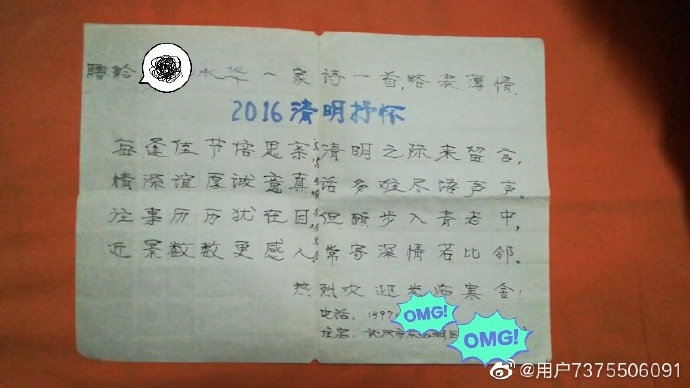 赠给 水华一家诗一首,略表薄情.
2016清明抒怀
每逢佳节倍思亲,清明之际来留言,
情深谊厚诚意真,话多难尽语声声.
往事历历犹在目,但愿步入青老中,
近景数数更感人,常寄深情若比邻.
热烈欢迎光临寒舍!
电话,1397
住容,武汉市东
OMG!
OMG!
@用户7375506091